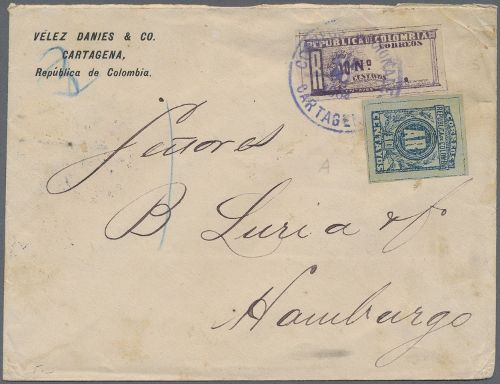 VÉLEZ DANIES & CO.
CARTAGENA,
República de Colombia.
REPUBLICA DE COLOMBIA
CORREOS
R 10 Nº
CENTAVOS
CARTAGENA
AR
10
CENTAVOS
Señores
B Luria & Cº
Hamburgo